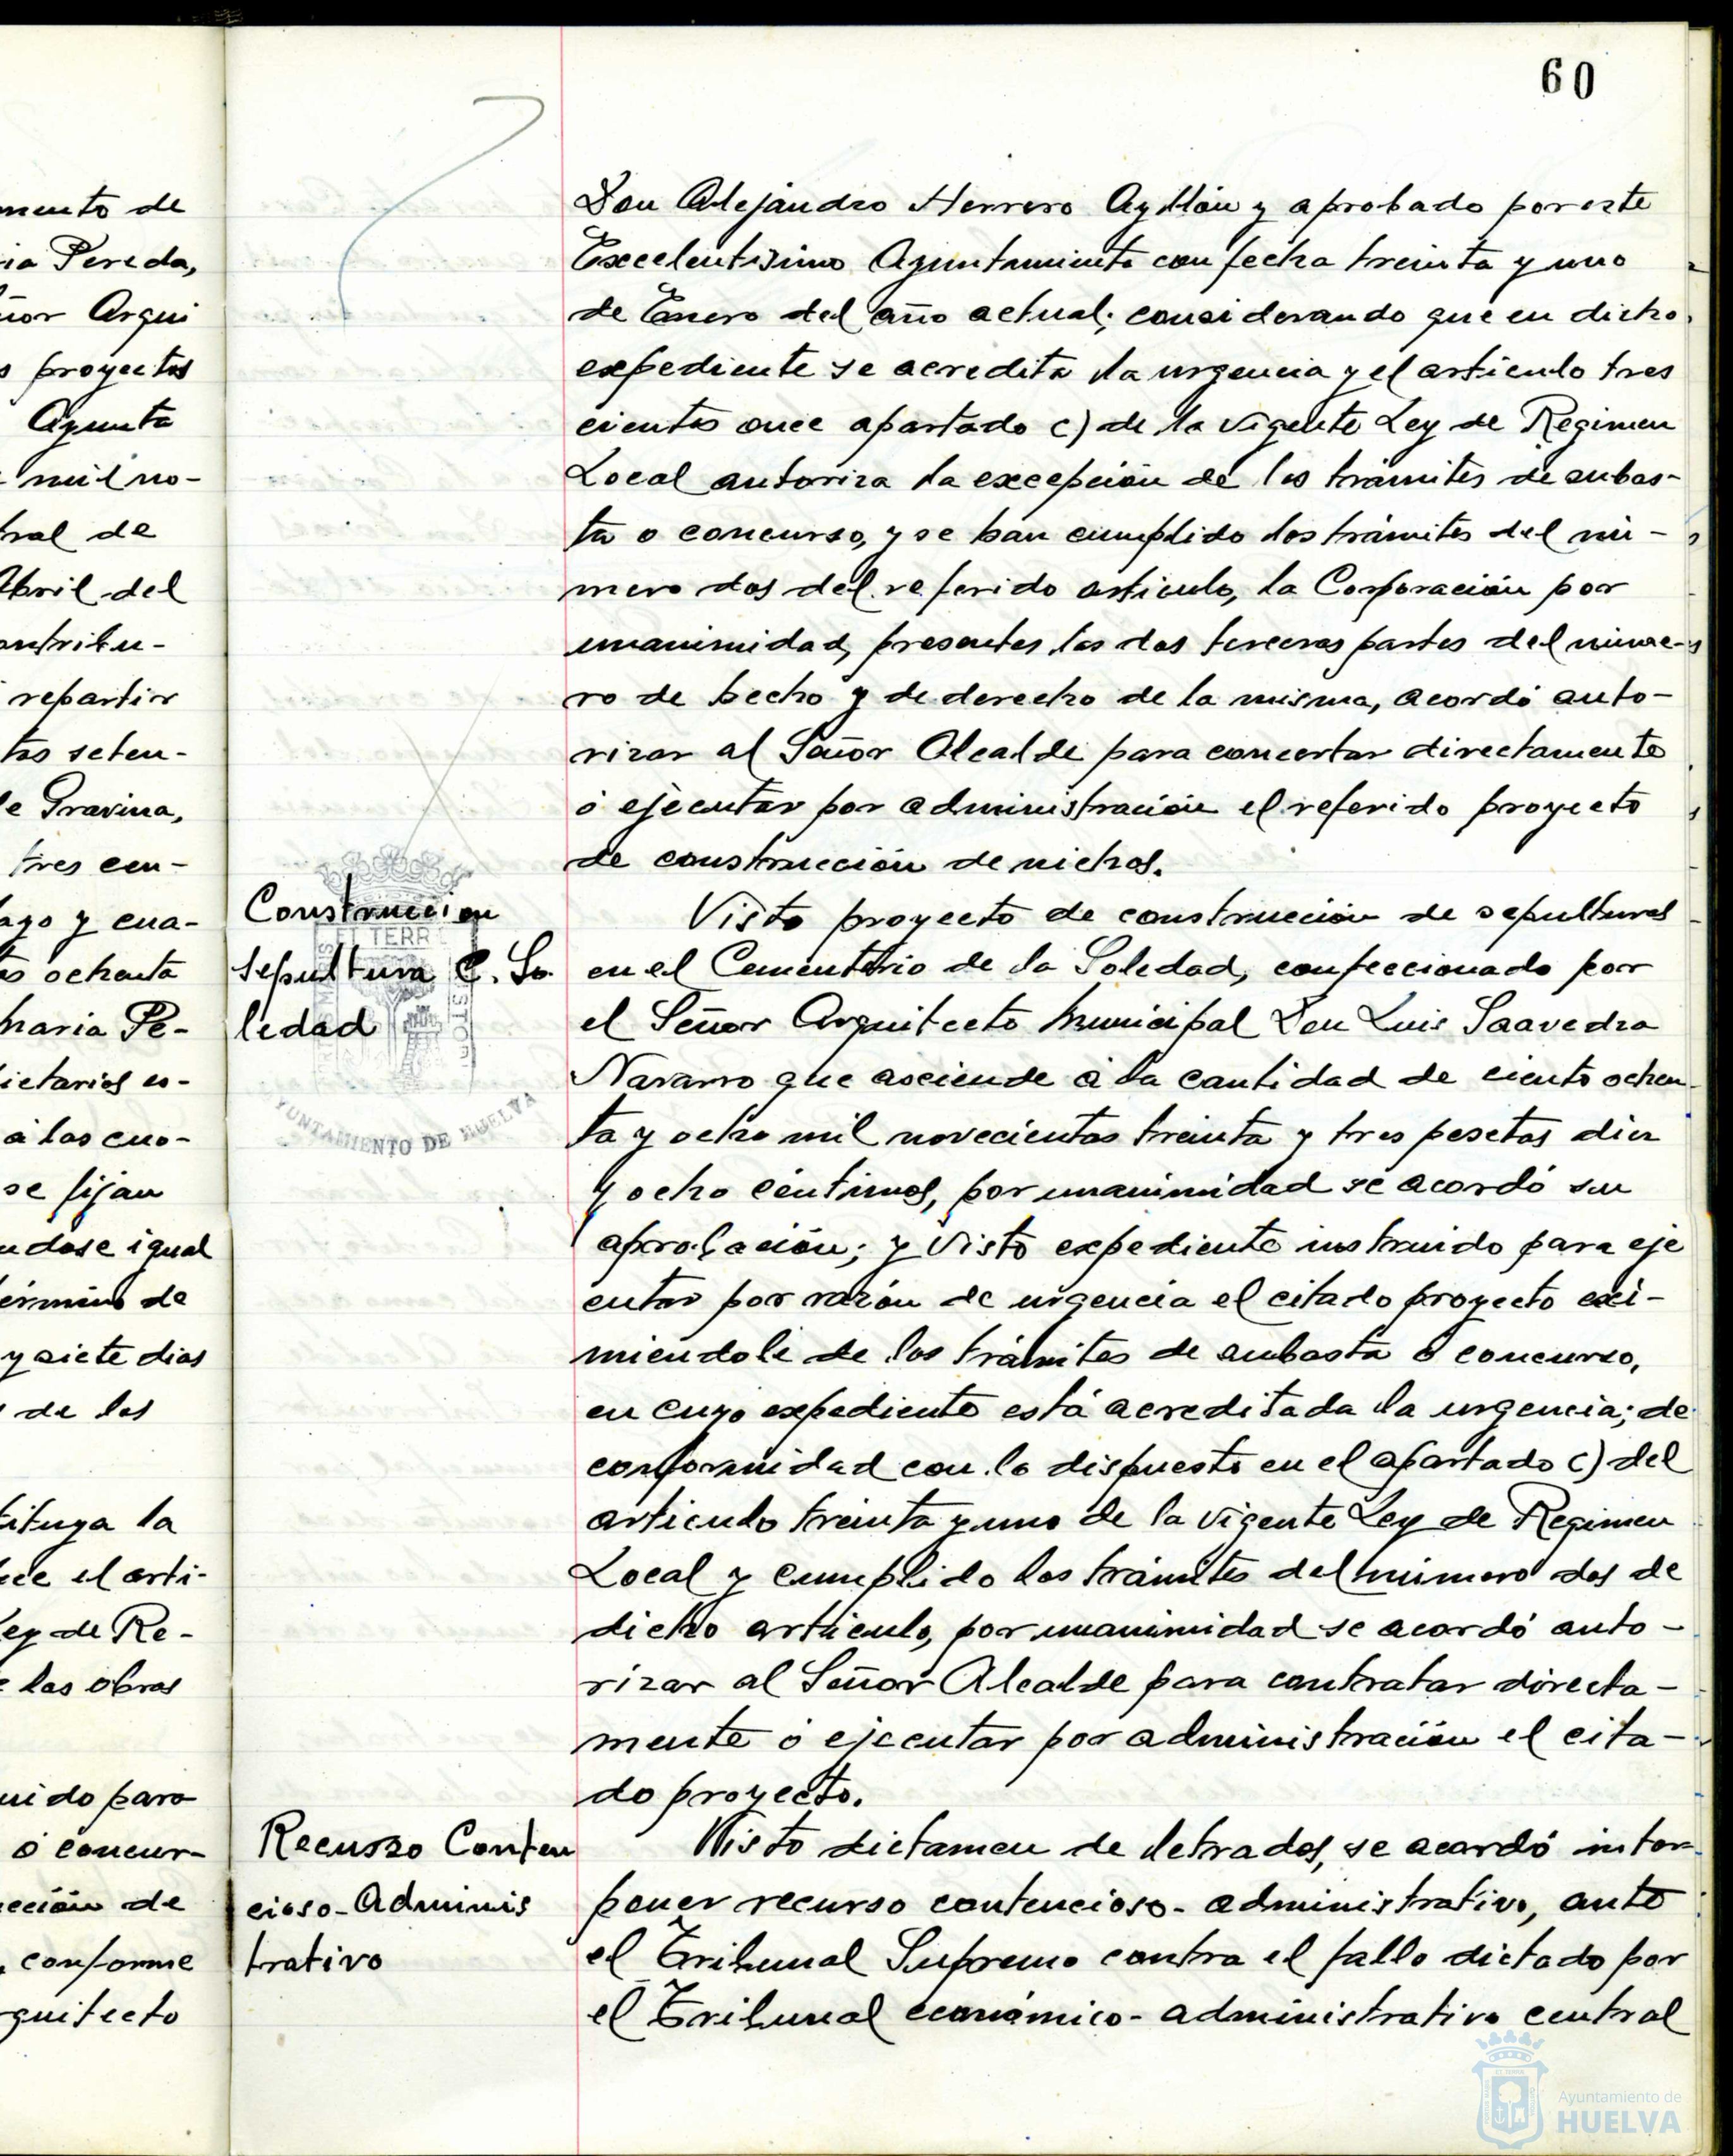 60
mento de
ia Pereda,
ñor Arqui
s proyectos
Ayunta
mil no-
ral de
Abril del
ontribu-
repartir
tas seten-
le Gravina,
tres cen-
ago y cua-
os ochenta
haria Pe-
ietarios es-
a las cuo-
se fijan
ndose igual
érmino de
y siete dias
de los
tituya la
ece el arti-
ey de Re-
e las obras
uido para
ó concur-
ección de
conforme
rquitecto
Don Alejandro Herrero Ayllón y aprobado por este
Excelentisimo Ayuntamiento con fecha treinta y uno
de Enero del año actual; considerando que en dicho
expediente se acredita la urgencia y el articulo tres
cientos once apartado c) de la vigente Ley de Regimen
Local autoriza la excepción de los trámites de subas-
ta o concurso, y se han cumplido los trámites del nú-
mero dos del referido articulo, la Corporación por
unanimidad, presentes las dos terceras partes del núme-
ro de hecho y de derecho de la misma, acordó auto-
rizar al Señor Alcalde para concertar directamente
ó ejecutar por administración el referido proyecto
de construcción de nichos.
Construccion
sepultura C. So
ledad
AYUNTAMIENTO DE HUELVA
Visto proyecto de construcción de sepulturas
en el Cementerio de la Soledad, confeccionado por
el Señor Arquitecto Municipal Don Luis Saavedra
Navarro que asciende á la cantidad de ciento ochen-
ta y ocho mil novecientas treinta y tres pesetas diez
y ocho céntimos, por unanimidad se acordó su
aprobación; y visto expediente instruido para eje
cutar por razón de urgencia el citado proyecto exi-
miendole de los trámites de subasta ó concurso,
en cuyo expediente está acreditada la urgencia; de
conformidad con lo dispuesto en el apartado c) del
articulo treinta y uno de la vigente Ley de Regimen
Local y cumplido los trámites del número dos de
dicho articulo, por unanimidad se acordó auto-
rizar al Señor Alcalde para contratar directa-
mente ó ejecutar por administración el cita-
do proyecto.
Recurso Conten
cioso-Adminis
trativo
Visto dictamen de letrados, se acordó inter-
poner recurso contencioso-administrativo, ante
el Tribunal Supremo contra el fallo dictado por
el Tribunal económico-administrativo central
Ayuntamiento de
HUELVA